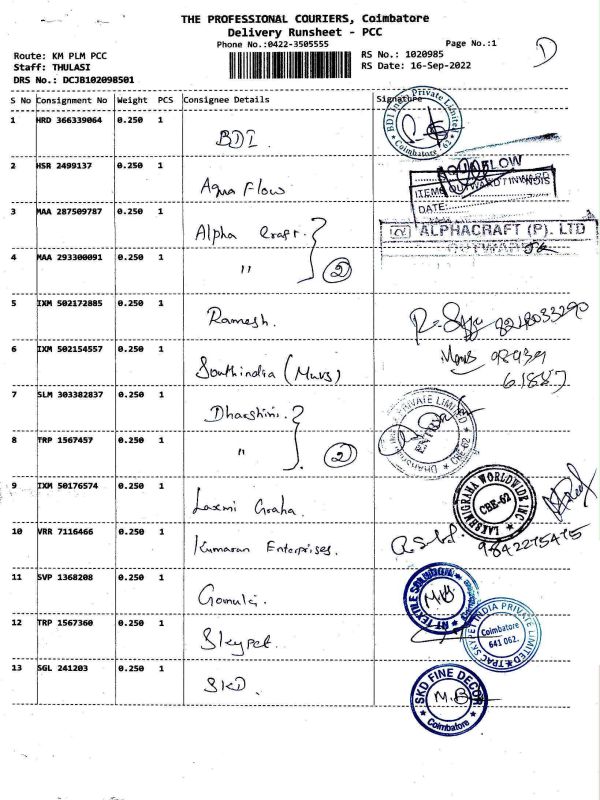 THE PROFESSIONAL COURIERS, Coimbatore
Delivery Runsheet - PCC
Phone No.:0422-3505555
Page No.:1
D
Route: KM PLM PCC
RS No.: 1020985
Staff: THULASI
RS Date: 16-Sep-2022
DRS No.: DCJB102098501
S No Consignment No Weight PCS Consignee Details Signature
1 HRD 366339064 0.250 1 BDI.
BDI Private Limited * Coimbatore - 62 *
2 HSR 2499137 0.250 1 Aqua Flow
ITEMS OUTWARD / INWARD
DATE:
3 MAA 287509787 0.250 1 Alpha Craft.
ALPHACRAFT (P). LTD
OUTWARD
4 MAA 293300091 0.250 1 " 2
5 IXM 502172885 0.250 1 Ramesh.
8248033290
6 IXM 502154557 0.250 1 Southindia (Murs)
7 SLM 303382837 0.250 1 Dharshini.
PRIVATE LIMITED * CBE-62 *
ENTRY
8 TRP 1567457 0.250 1 " 2
9 IXM 50176574 0.250 1 Laxmi Graha.
LAKSHMIGRAHA WORLDWIDE INC
CBE-62
10 VRR 7116466 0.250 1 Kumaran Enterprises.
9842275475
11 SVP 1368208 0.250 1 Gomuki.
TEXTILE SOLUTION
M.B.
12 TRP 1567360 0.250 1 Skypet
TPAC SKYPET INDIA PRIVATE LIMITED
Coimbatore
641 062.
13 SGL 241203 0.250 1 SKD.
SKD FINE DECOR
M.B
* Coimbatore *